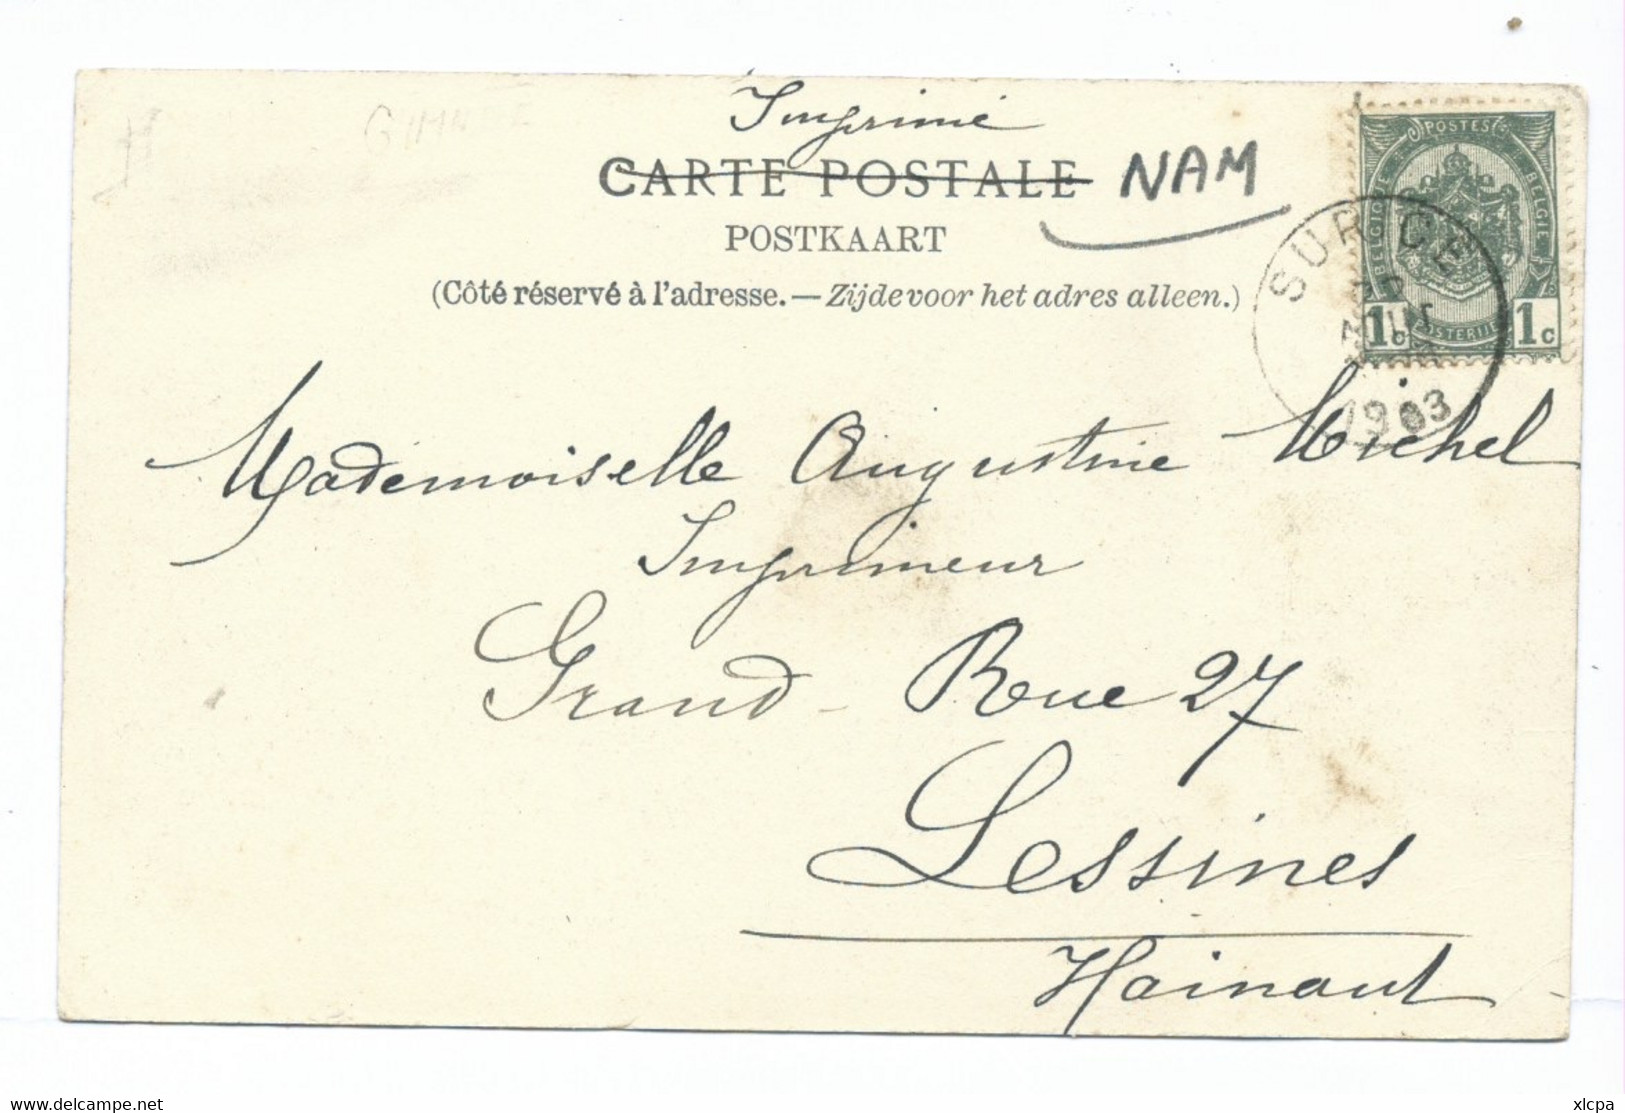 Imprimé
CARTE POSTALE NAM
POSTKAART
(Côté réservé à l'adresse. — Zijde voor het adres alleen.)
POSTES
BELGIQUE BELGIE
POSTERIJEN
1c 1c
SURICE
JUIN
1903
Mademoiselle Augustine Michel
Imprimeur
Grand-Rue 27
Lessines
Hainaut
www.delcampe.net
xlcpa